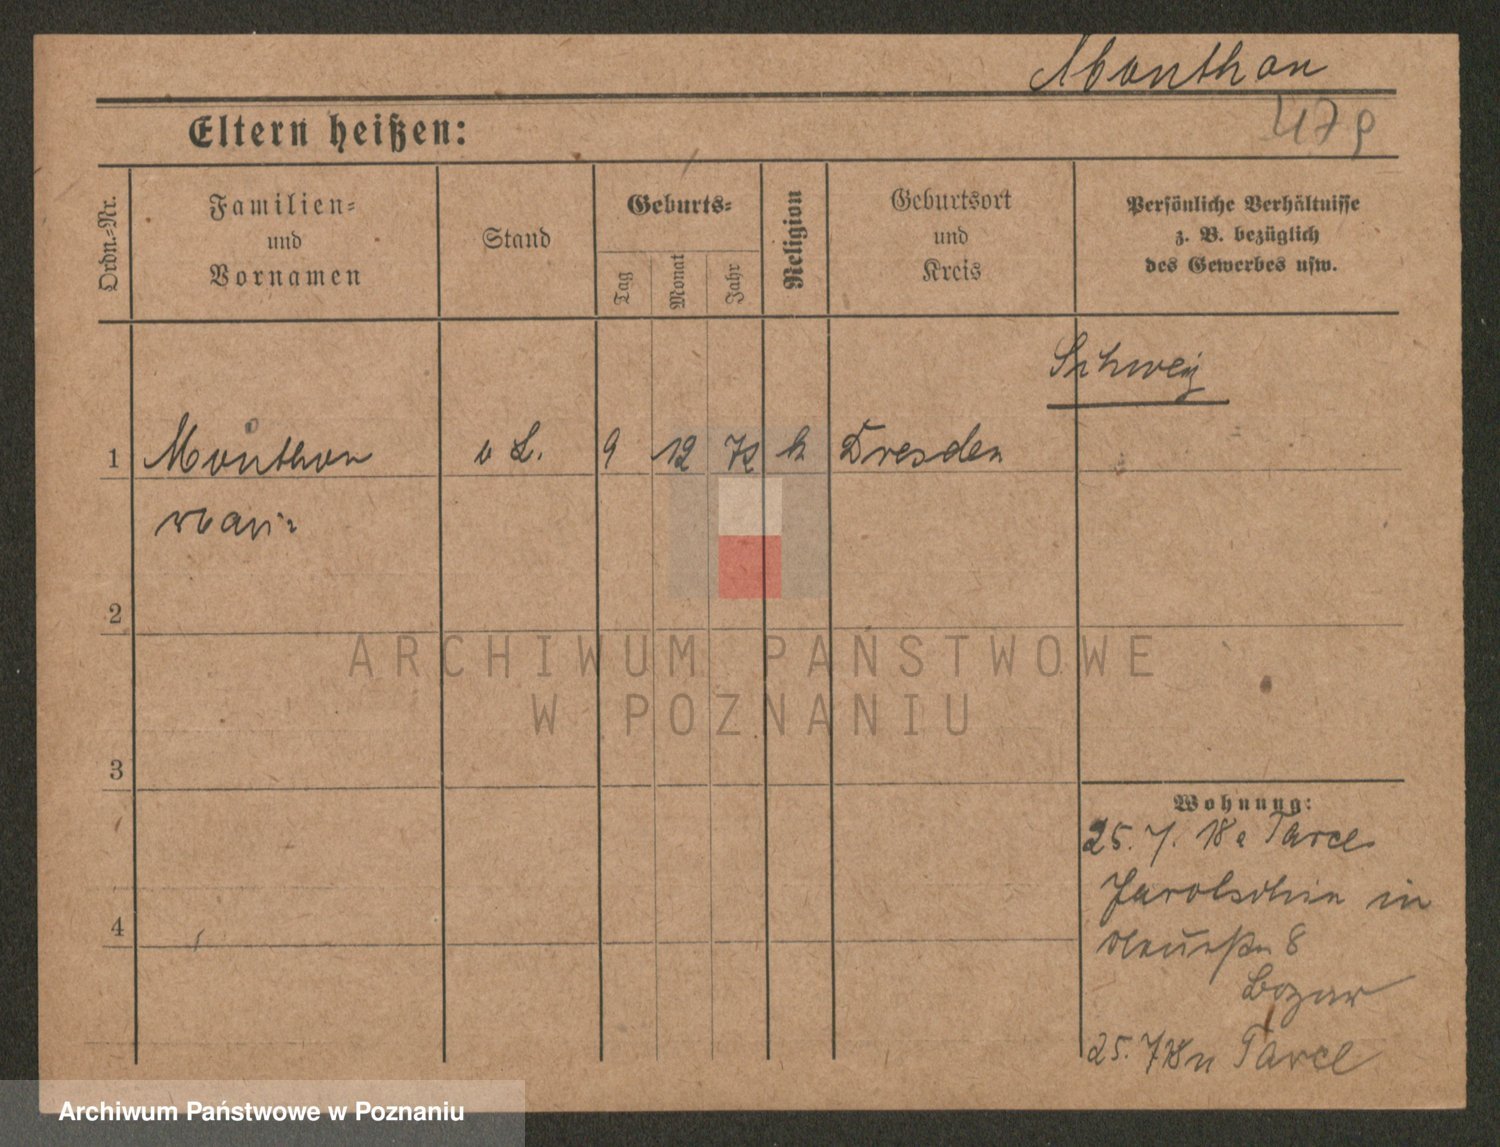 Monthon
479
Eltern heißen:
Ordn.-Nr.
Familien-
und
Vornamen
Stand
Geburts-
Tag
Monat
Jahr
Religion
Geburtsort
und
Kreis
Persönliche Verhältnisse
z. B. bezüglich
des Gewerbes usw.
Schweiz
1 Monthon L. 9 12 72 Dresden
Marie
2
3
4
Wohnung:
25. 7. 18 Tarce
in
8
Bazar
25. 7 18 n Tarce
ARCHIWUM PAŃSTWOWE
W POZNANIU
Archiwum Państwowe w Poznaniu